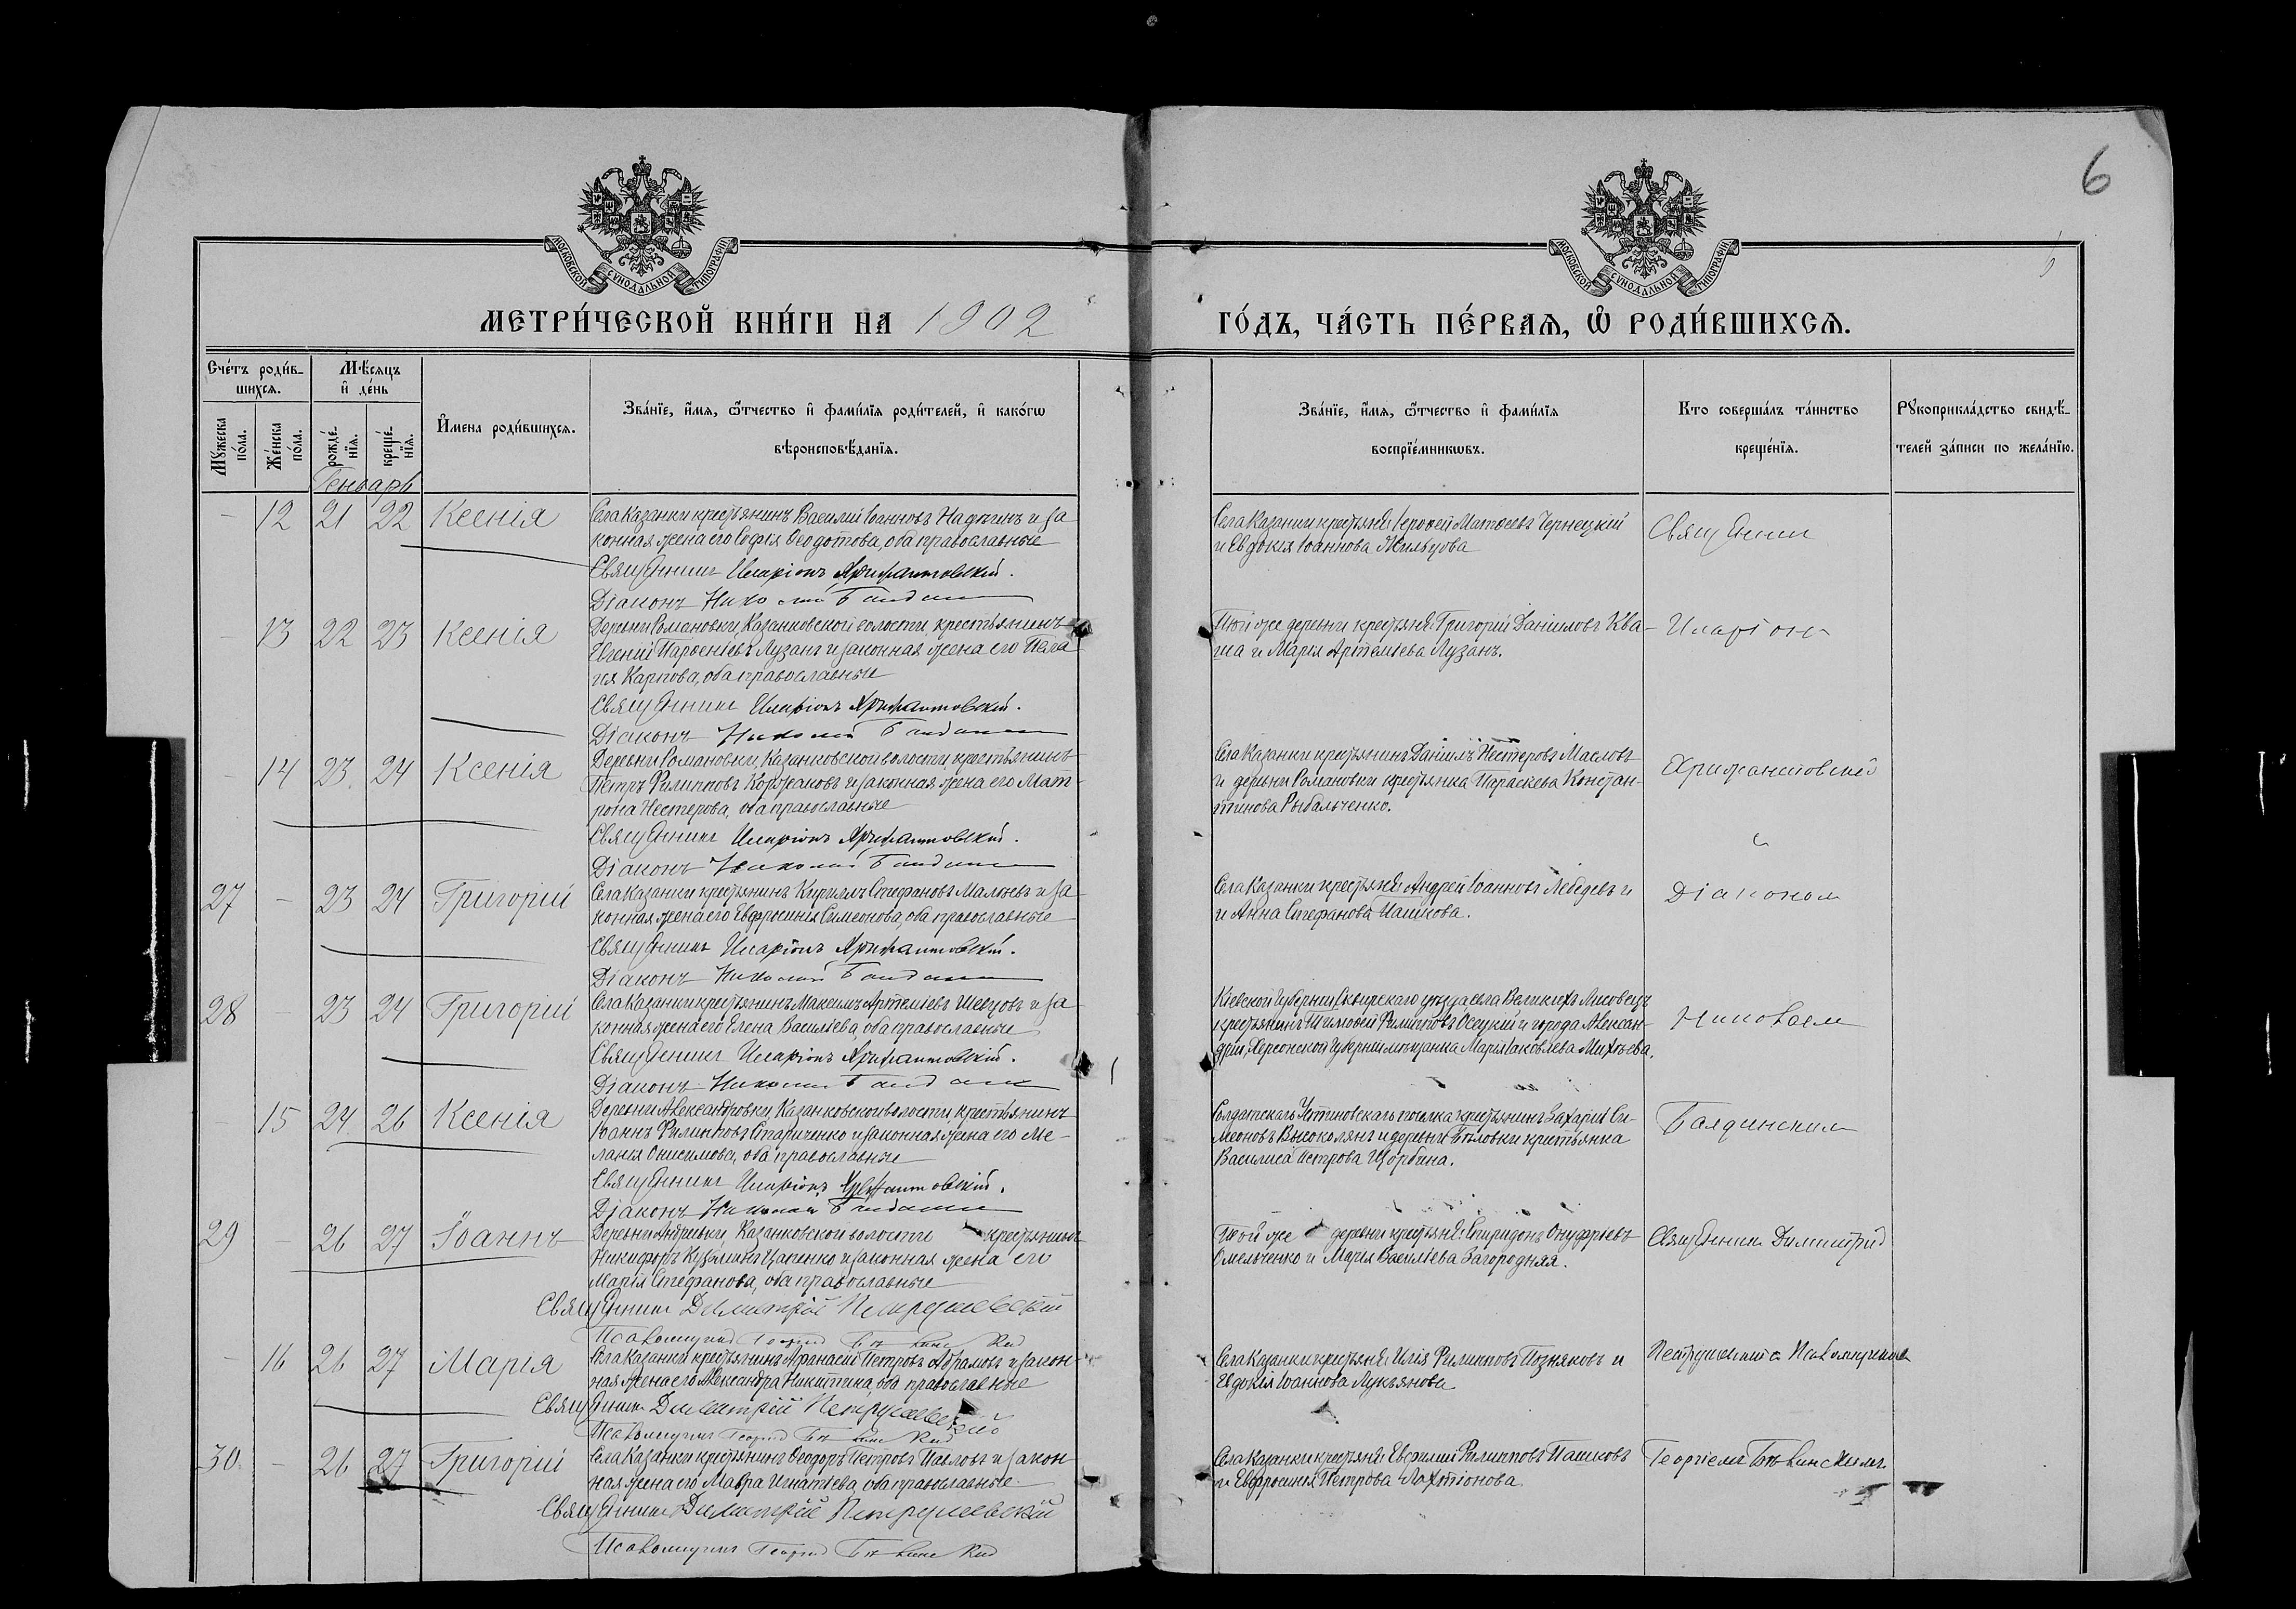 6
МОСКОВСКОЙ СѴНОДАЛЬНОЙ ТИПОГРАФІИ
МОСКОВСКОЙ СѴНОДАЛЬНОЙ ТИПОГРАФІИ
МЕТРИ́ЧЕСКОЙ КНИ́ГИ НА 1902
ГО́ДЪ, ЧА́СТЬ ПЕ́РВАѦ, Ѡ҆ РОДИ́ВШИХСѦ.
Сче́тъ роди́в-
шихсѧ.
Мѣ́сѧцъ
и҆ де́нь
Мꙋ́жеска
по́ла.
Же́нска
по́ла.
рожде́-
нїѧ.
креще́-
нїѧ.
И҆мена роди́вшихсѧ.
Зва́нїе, и҆́мѧ, ѻ҆́тчество и҆ фами́лїѧ роди́телей, и҆ како́гѡ
вѣроисповѣ́данїѧ.
Зва́нїе, и҆́мѧ, ѻ҆́тчество и҆ фами́лїѧ
воспрїе́мникѡвъ.
Кто соверша́лъ та́инство
креще́нїѧ.
Рꙋкоприкла́дство свидѣ́-
телей за́писи по жела́нїю.
Генварь
- 12 21 22 Ксенія
Села Казанки крестьянинъ Василій Іоанновъ Надтинъ и за
конная жена его Софія Ѳеодотова, оба православные
Священникъ Иларіонъ Хрижантовскій.
Діаконъ Николай
Села Казанки крестьяне: Іероѳей Матѳеевъ Чернецкій
и Евдокія Іоаннова Жильцова
Священник
- 13 22 23 Ксенія
Деревни Романовки, Казанковской волости, крестьянинъ
Евгеній Парѳеніевъ Лузанъ и законная жена его Пела
гія Карпова, оба православные
Священникъ Иларіонъ Хрижантовскій.
Діаконъ Николай
Той же деревни крестьяне: Григорій Даніиловъ Ква-
ша и Марія Артеміева Лузанъ.
Иларіон
- 14 23. 24 Ксенія
Деревни Романовки, Казанковской волости, крестьянинъ
Петръ Филипповъ Коржаковъ и законная жена его Мат-
рона Нестерова, оба православные
Священникъ Иларіонъ Хрижантовскій.
Діаконъ Николай
Села Казанки крестьянинъ Даніилъ Нестеровъ Масловъ
и деревни Романовки крестьянка Параскева Констан-
тинова Рыбальченко.
Хрижантовскій
с
27 - 23 24 Григорій
Села Казанки крестьянинъ Кириллъ Стефановъ и за
конная жена его Евфросинія Симеонова, оба православные
Священникъ Иларіонъ Хрижантовскій.
Діаконъ Николай
Села Казанки крестьяне: Андрей Іоанновъ Лебедевъ и
и Анна Стефанова Пашкова.
Діаконом
28 - 23 24 Григорій
Села Казанки крестьянинъ Максимъ Артеміевъ Шевцовъ и за
конная жена его Елена Васильева, оба православные
Священникъ Иларіонъ Хрижантовскій.
Діаконъ Николай
Кіевской губерніи Сквирскаго уѣзда села Великихъ Лисовецъ
крестьянинъ Тимоѳей Филипповъ Осецкій и города Алексан-
дріи, Херсонской губерніи мѣщанка Марія Іаковлева Михѣева.
Николаем
- 15 24 26 Ксенія
Деревни Александровки, Казанковской волости, крестьянинъ
Іоаннъ Филипповъ Стариченко и законная жена его Ме-
ланія Онисимова, оба православные
Священникъ Иларіонъ Хрижантовскій.
Діаконъ Николай
Солдатскаго Устиновскаго поселка крестьянинъ Захарій Си-
меоновъ Высоколянъ и деревни Бѣловки крестьянка
Василиса Петрова Щорбина.
29 - 26 27 Іоаннъ
Деревни Андреевки, Казанковской волости крестьянинъ
Никифоръ Кузьминъ Цапенко и законная жена его
Марія Стефанова, оба православные
Священникъ Димитрій Петрушевскій
Псаломщикъ Георгій
Той же деревни крестьяне: Спиридонъ Онуфріевъ
Омельченко и Марья Васильева Загородняя.
Священник Димитрій
- 16 26 27 Марія
Села Казанки крестьянинъ Аѳанасій Петровъ Абрамовъ и закон-
ная жена его Александра Никитина, оба православные
Священникъ Димитрій Петрушевскій
Псаломщикъ Георгій
Села Казанки крестьяне: Илія Филипповъ Позняковъ и
Евдокія Іоаннова Лукьянова
Петрушевскій с Псаломщиком
30. - 26 27 Григорій
Села Казанки крестьянинъ Ѳеодоръ Петровъ Павловъ и закон
ная жена его Мавра Игнатіева, оба православные
Священникъ Димитрій Петрушевскій
Псаломщикъ Георгій
Села Казанки крестьяне: Евѳимій Филипповъ Пашковъ
и Евфросинія Петрова Лахтіонова
Георгіемъ